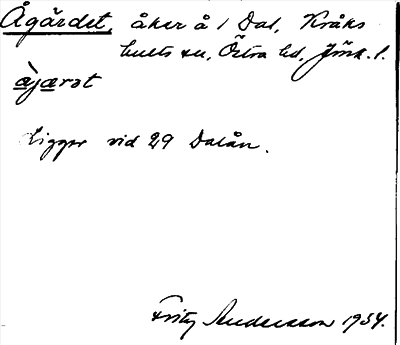 Ågärdet åker å 1 Dal, Kråks
hults sn, Östra hd, Jönk. l.
Ligger vid 29 Dalån.
Fritz Andersson 1934.